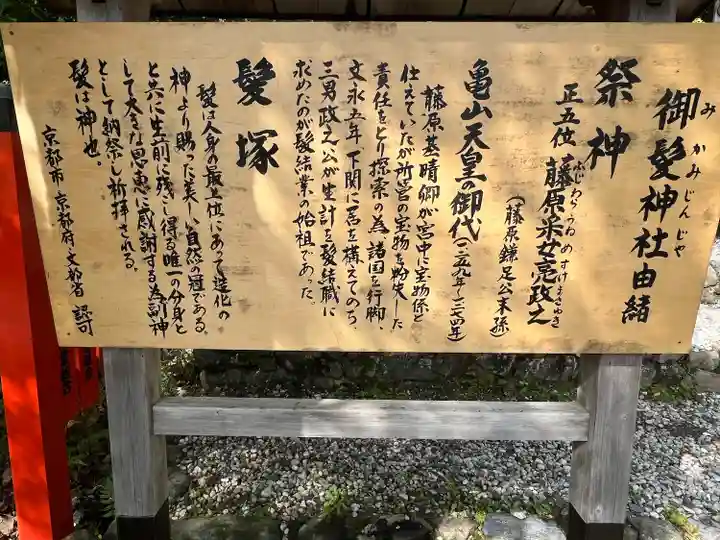 御髪神社由緒
みかみじんじゃ
祭神
正五位 藤原采女亮政之
ふじわらうねめすけまさゆき
(藤原鎌足公末孫)
亀山天皇の御代(一二五九年〜一二七四年)
藤原基晴卿が宮中に宝物係と
仕えていたが所管の宝物を紛失した
責任をとり探索の為、諸国を行脚、
文永五年、下関に居を構えてのち、
三男政之公が生計を髪結職に
求めたのが髪結業の始祖であった。
髪塚
髪は人身の最上位にあって造化の
神より賜った美しい自然の冠である。
と共に生前に残し得る唯一の分身と
して大きな恩恵に感謝する為副神
として納祭し祈拝される。
髪は神也。
京都市・京都府・文部省 認可